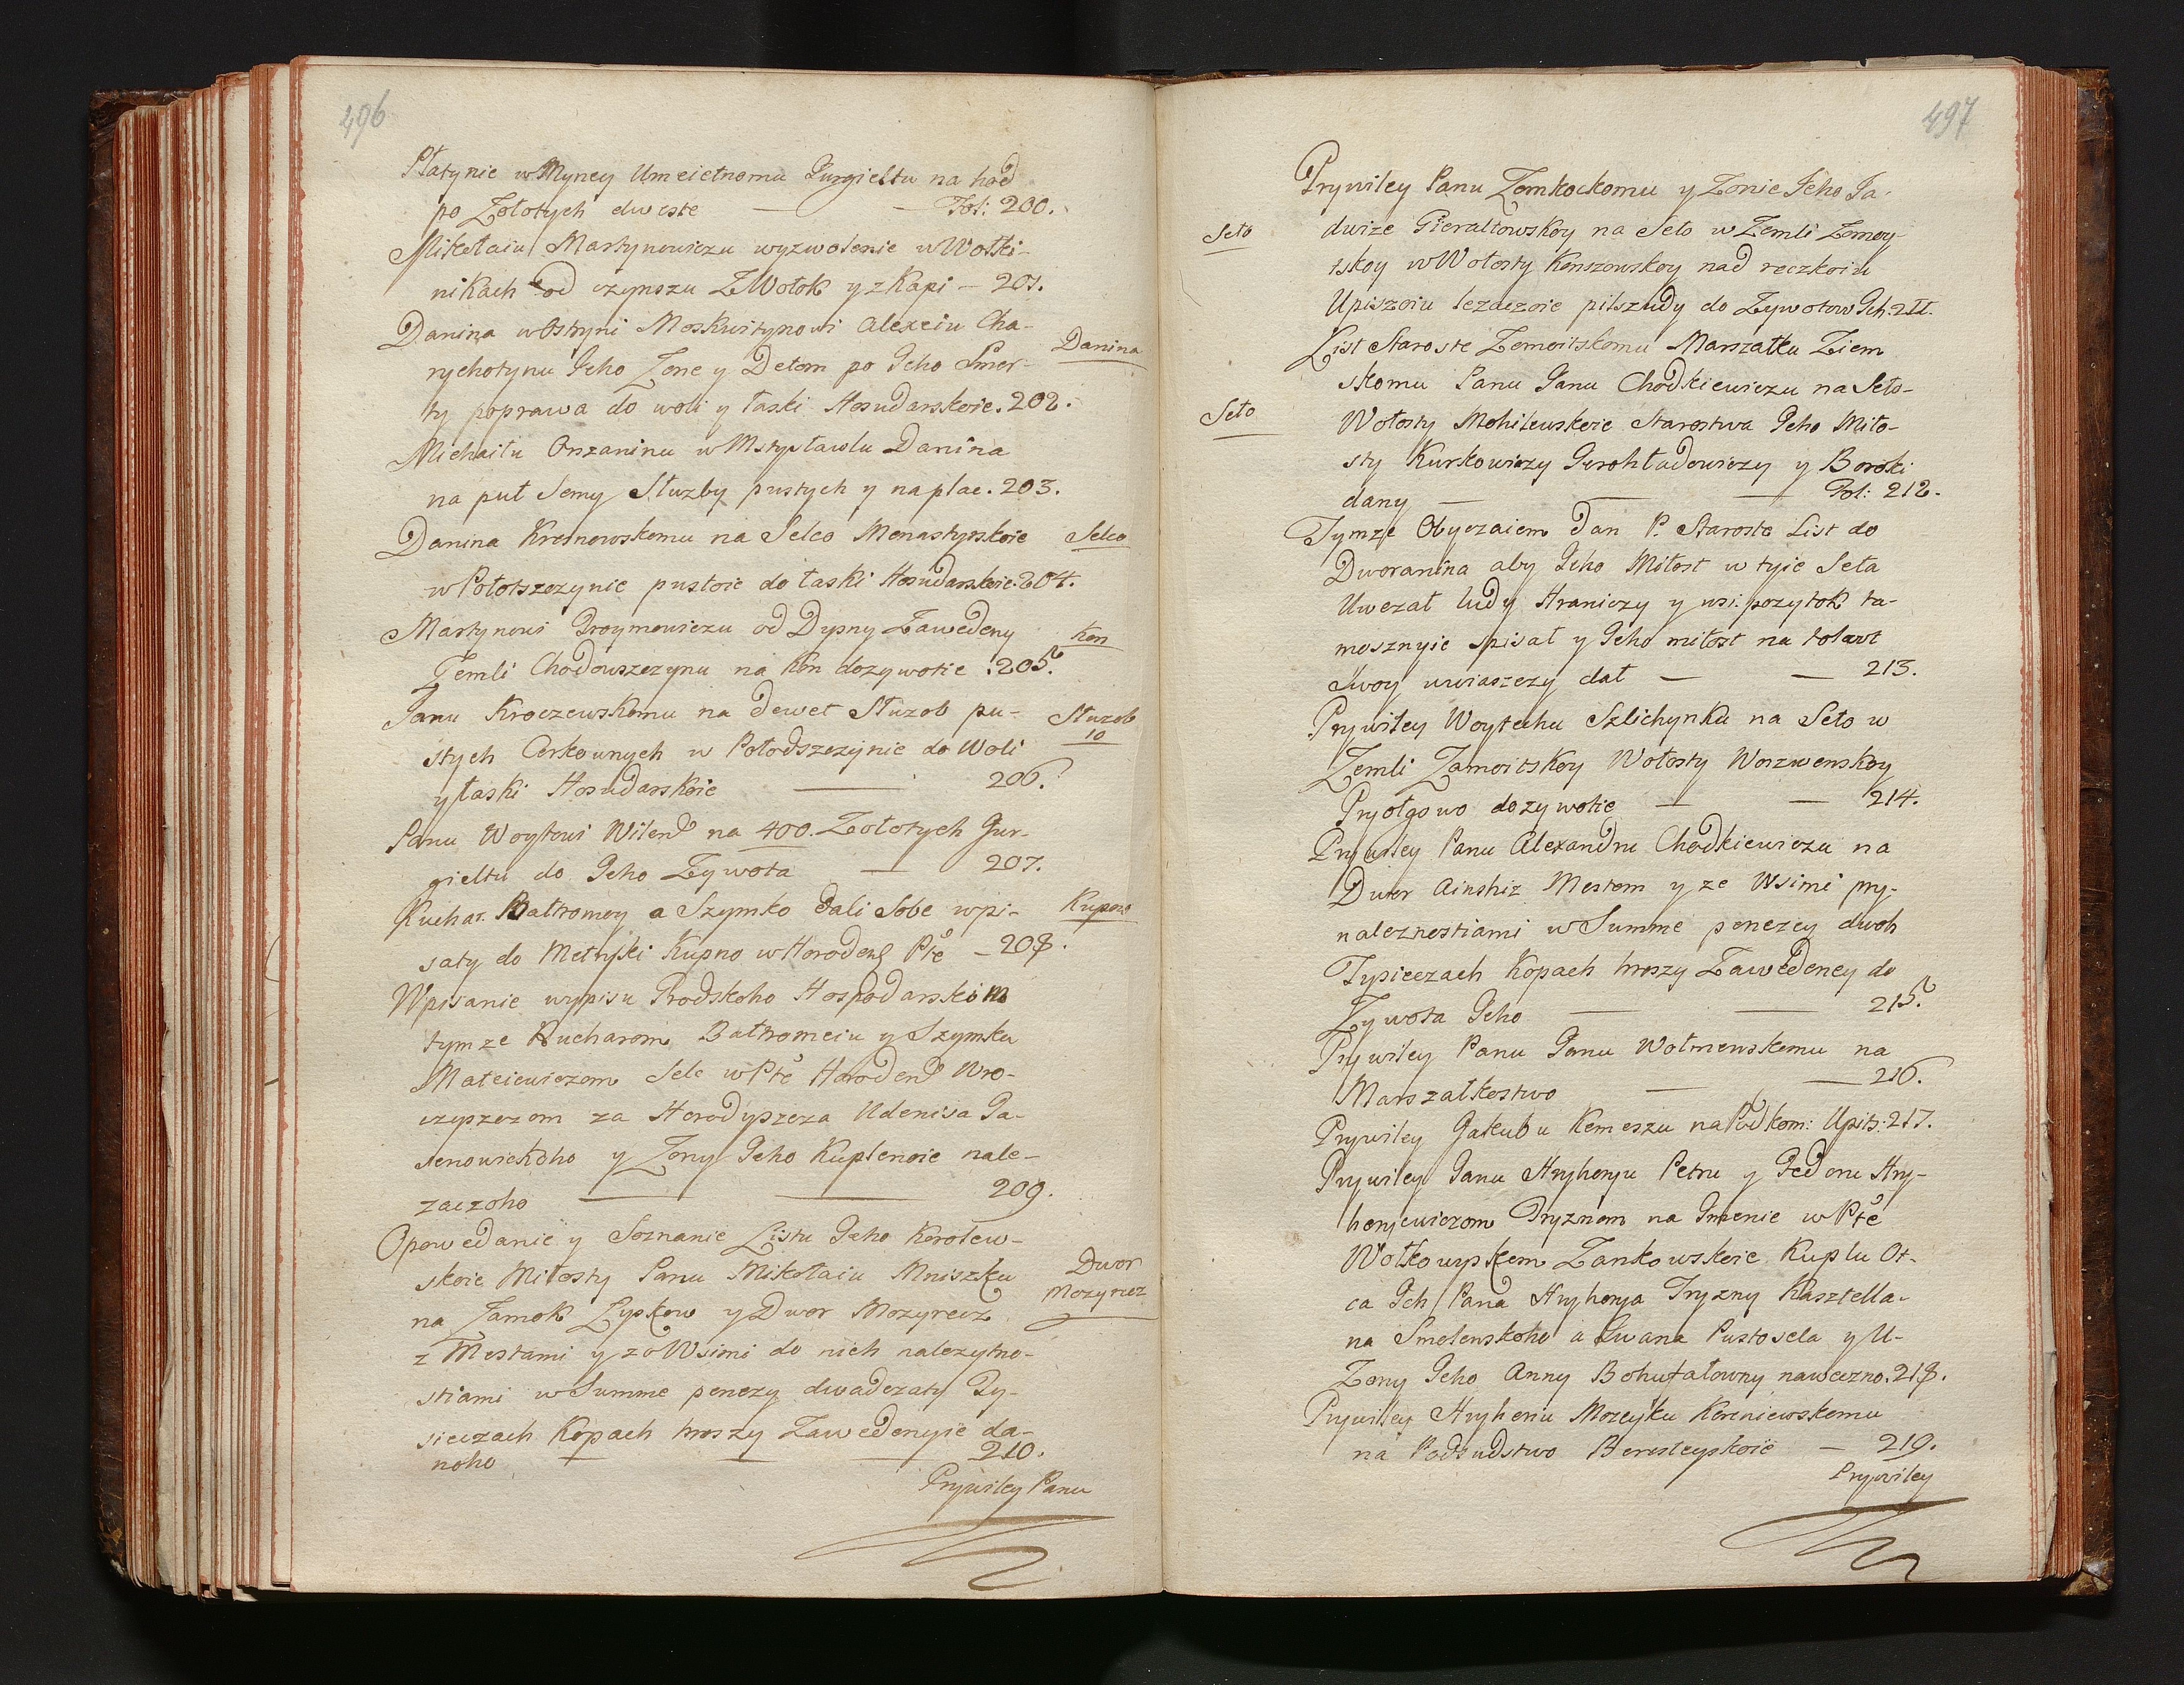 496
Płatynie w Myncy Umeietnomu Jurgieltu na hod
po Zołotych dweste — — Fol: 200.
Mikołaiu Martynowiczu wyzwolenie w Wołki-
nikach od czynszu Z Wołok y z Kapi — 201.
Danina w Ostryni Moskwitynowi Alexeiu Cha-
Danina
rychotynu Jeho Zone y Detem po Jeho Smer-
ty poprawa do woli y łaski Hosudarskoie. 202.
Michaiłu Orszaninu w Mstysławlu Danina
na puł Semy Służby pustych y na plac. 203.
Danina Krosnowskomu na Selco Monastyrskoie
Selco
w Połotszczynie pustoie do łaski Hosudarskoie. 204.
Martynowi Proymowiczu od Dysny Zawedeny
Kon
Zemli Chodowszczynu na Kon dożywotie. 205.
Janu Kroczewskomu na dewet Służob pu-
Służob
10
stych Cerkownych w Połodszczynie do Woli
y łaski Hosudarskoie — 206.
Panu Woytowi Wilend na 400. Zołotych Jur-
gieltu do Jeho Zywota — 207.
Kuchar. Bałtromey a Szymko dali Sobe wpi-
Kupno
saty do Metryki Kupno w Horodens Pte — 208.
Wpisanie wypisu Prodskoho Hospodarskim
tymze Kucharom Bałtromeiu y Szymku
Mateiewiczom Sele w Pte Horodend Wro-
czyszczom za Horodyszcza Udenisa Ja-
senowickoho y Zony Jeho Kuplenoie nale-
zaczoho — — 209.
Opowedanie y Soznanie Listu Jeho Korolew-
skoie Miłosty Panu Mikołaiu Mniszku
Dwor
Mozyrecz
na Zamok Łyskow y Dwor Mozyrecz
z Mestami y zo Wsimi do nich nalezytno-
stiami w Summe penezy dwadczaty Ty-
sieczach Kopach hroszy Zawedenyie da-
noho — — — 210.
Prywiley Panu
497
Prywiley Panu Zomkockomu y Zonie Jeho Ja-
Seło
dwize Gierałtowskoy na Seło w Zemli Zomoy-
tskoy w Wołosty Korszowskoy nad reczkoiu
Upiszoiu lezaczoie piłszudy do Zywotow Ich. 211.
List Staroste Zemoitskomu Marszałku Ziem
skomu Panu Janu Chodkiewiczu na Seło-
Seło
Wołosty Mohilewskoie Starostwa Jeho Miło-
sty Kurkowiczy Gwozhładowiczy y Boroki
dany — — — Fol: 212.
Tymze Obyczaiem dan P. Staroste List do
Dworanina aby Jeho Miłost w tyie Seła
Uwezał ludy Hraniczy y wsi pozytok ta-
mosznyie spisał y Jeho miłost na to Lawt
Swoy uwiaszczy dał — — 213.
Prywiley Woytechu Szlichynku na Seło w
Zemli Zamoitskoy Wołosty Worzwenskoy
Pryołgowo dozywotie — — 214.
Prywiley Panu Alexandru Chodkiewiczu na
Dwor Ainshiz Mestom y ze Wsimi pry-
naleznostiami w Summe penezey dwoh
Tysieczach Kopach hroszy Zawedeney do
Zywota Jeho — — 215.
Prywiley Panu Janu Wołmenskomu na
Marszałkostwo — — 216.
Prywiley Jakubu Kemeszu na Podkom: Upits: 217.
Prywiley Panu Hryhoryu Petru y Fedoru Hry-
horyewiczom Tryznom na Imenie w Pte
Wołkowyskom Zankowskoie Kuplu Ot-
ca Ich Pana Hryhorya Tryzny Kasztella-
na Smolenskoho u Iwana Pustosela y U-
Zony Jeho Anny Bohufałowny naweczno. 218.
Prywiley Hryhoriu Mozeyku Kореniewskomu
na Podsudstwo Beresteyskoie — 219.
Prywiley